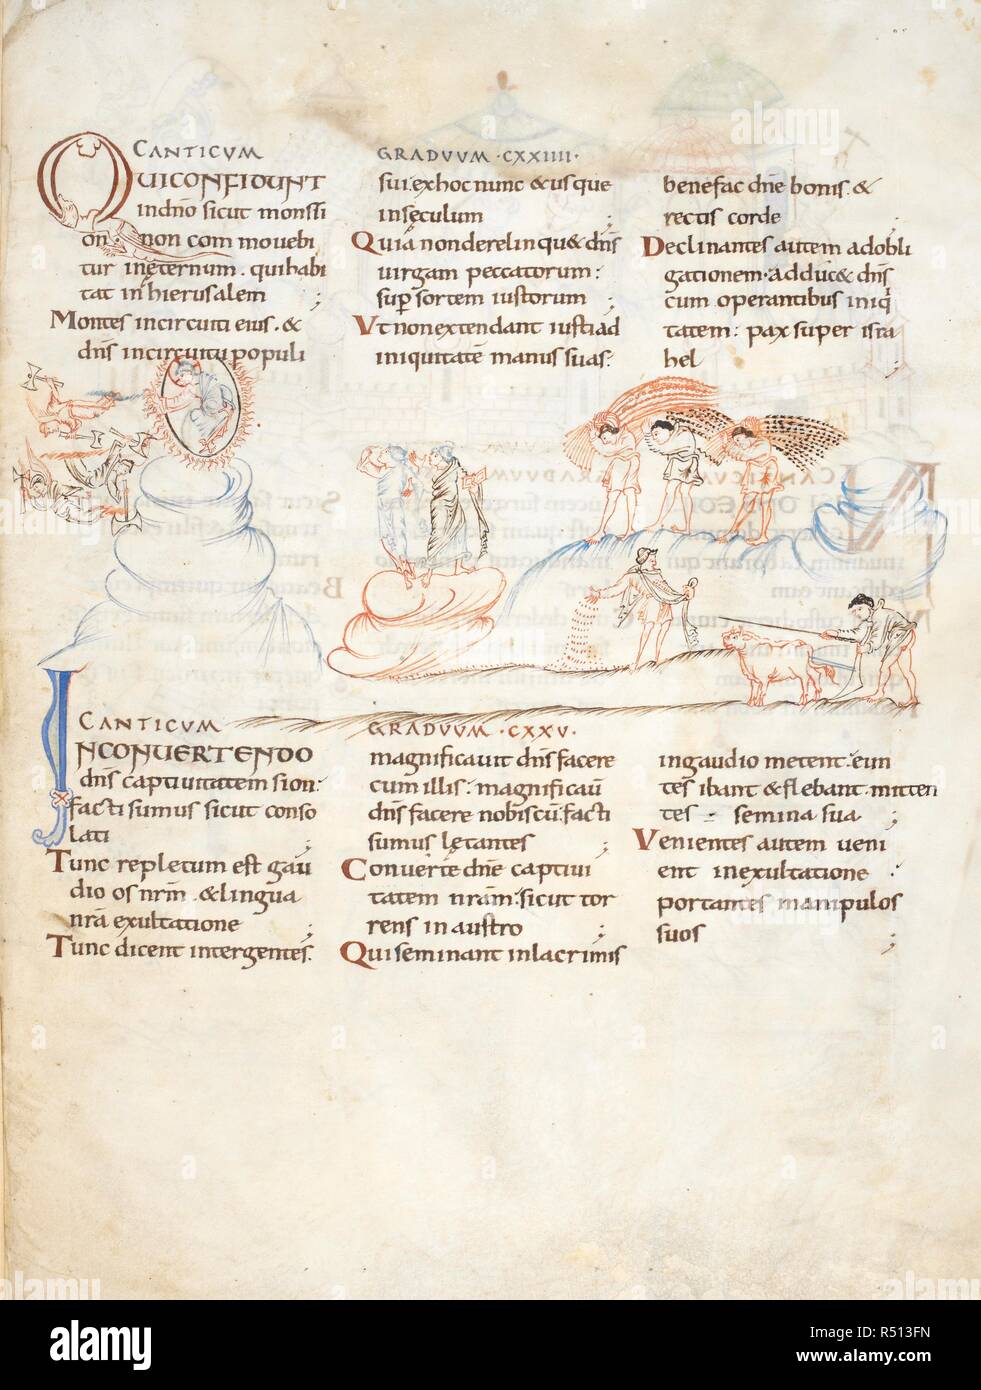 CANTICUM GRADUUM · CXXIIII ·
QUI CONFIDUNT
in dño sicut monsſi
on · non com mouebi
tur in ęternum . qui habi
tat in hierusalem ;
Montes in circuitu eius . &
dn̄s in circuitu populi
sui . ex hoc nunc & us que
in sęculum ;
Quia non derelinqu& dn̄s
uirgam peccatorum :
sup sortem iustorum ;
Vt non extendant iusti ad
iniquitatē manus suas :
benefac dn̄e bonis . &
rectis corde ;
Declinantes autem ad obli
gationem · adduc& dn̄s
cum operantibus iniq
tatem : pax super isra
hel ;
CANTICUM GRADUUM · CXXV ·
IN CONUERTENDO
dn̄s captiuitatem sion :
facti sumus sicut conso
lati ;
Tunc repletum est gau
dio os nr̄m . & lingua
nr̄a exultatione ;
Tunc dicent inter gentes :
magnificauit dn̄s facere
cum illis : magnificaū
dn̄s facere nobiscū : facti
sumus lętantes ;
Conuerte dn̄e captiui
tatem nr̄am : sicut tor
rens in austro ;
Qui seminant in lacrimis
in gaudio metent : eun
tes ibant & flebant . mitten
tes semina sua ;
Venientes autem ueni
ent in exultatione ·
portantes manipulos
suos ;
alamy
alamy stock photo
R513FN
www.alamy.com